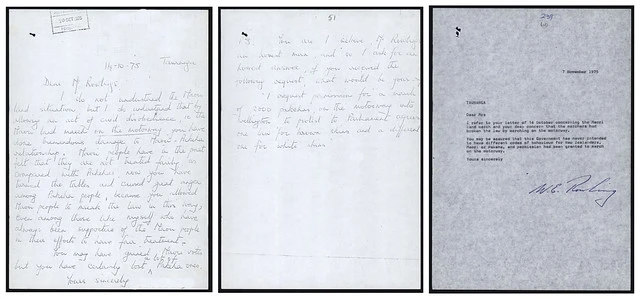 20 OCT 1975
14-10-75 Tauranga
Dear Mr Rowling,
I do not understand the Maori
land situation but I do understand that by
allowing an act of civil disturbance, ie the
Maori land march on the motorway you have
done tremendous damage to Maori-Pakeha
relationships. Maori people have in the past
felt that they are not treated fairly as
compared with Pakehas, now you have
turned the tables and caused great anger
among Pakeha people, because you allowed
Maori people to break the law in this way,
even among those like myself who have
always been supportive of the Maori people
in their efforts to have fair treatment.
You may have gained Maori votes
but you have certainly lost Pakeha ones.
Yours sincerely
51
P.S. You are I believe Mr Rowling
an honest man and so I ask for an
honest answer, if you received the
following request, what would be your
"I request permission for a march
of 2000 pakehas on the motorway into
Wellington to protest to Parliament against
one law for maori and a different
one for white
7 November 1975
TAURANGA
Dear
I refer to your letter of 14 October concerning the Maori
land march and your deep concern that the marchers had
broken the law by marching on the motorway.
You may be assured that this Government has never intended
to have different codes of behaviour for New Zealanders,
Maori or Pakeha, and permission had been granted to march
on the motorway.
Yours sincerely
W.E. Rowling